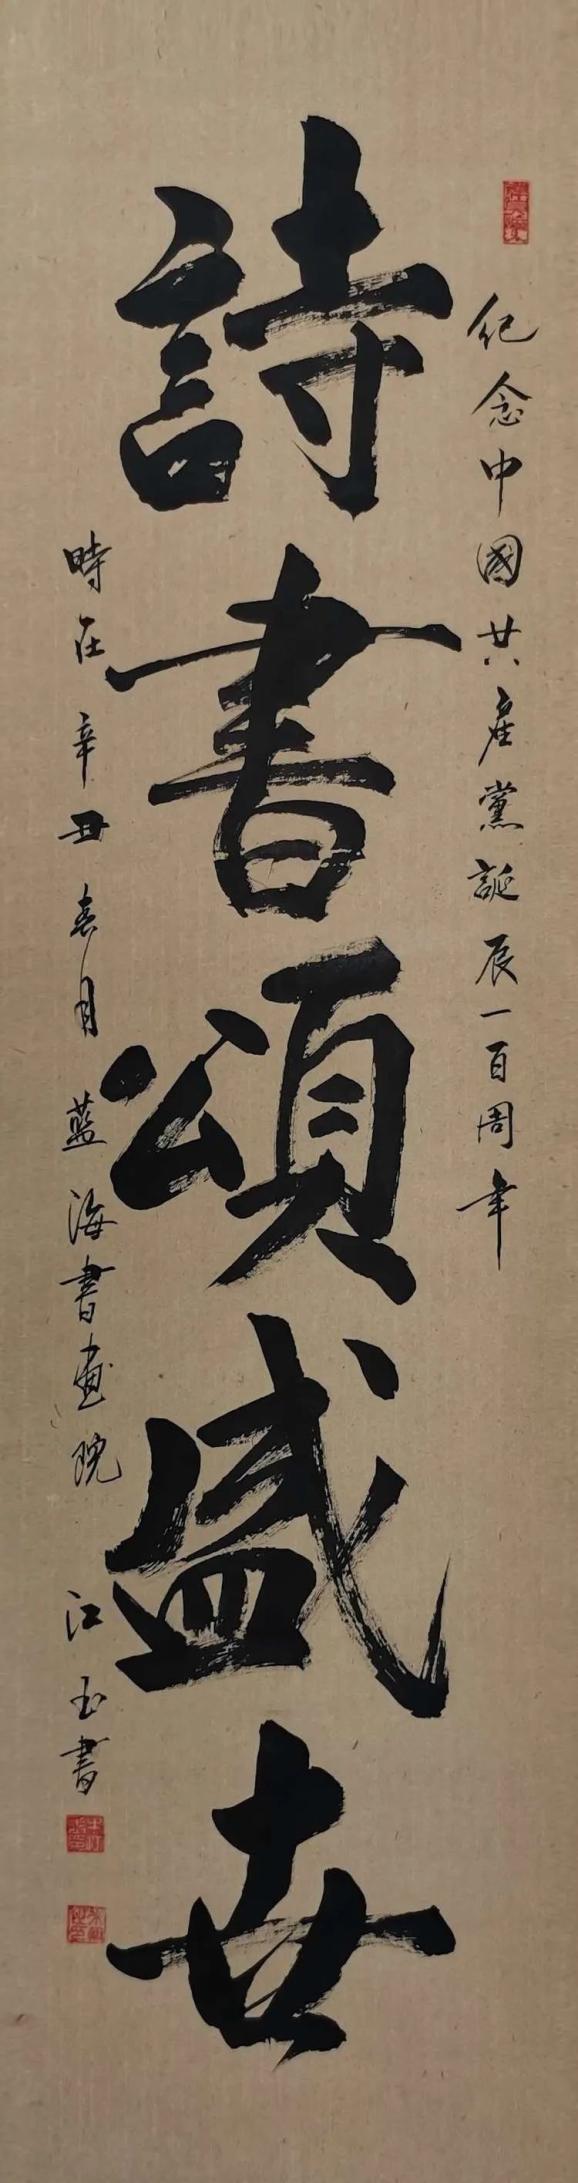 紀念中國共產黨誕辰一百周年
詩書頌盛世
時在辛丑春月藍海書畫院
江玉書